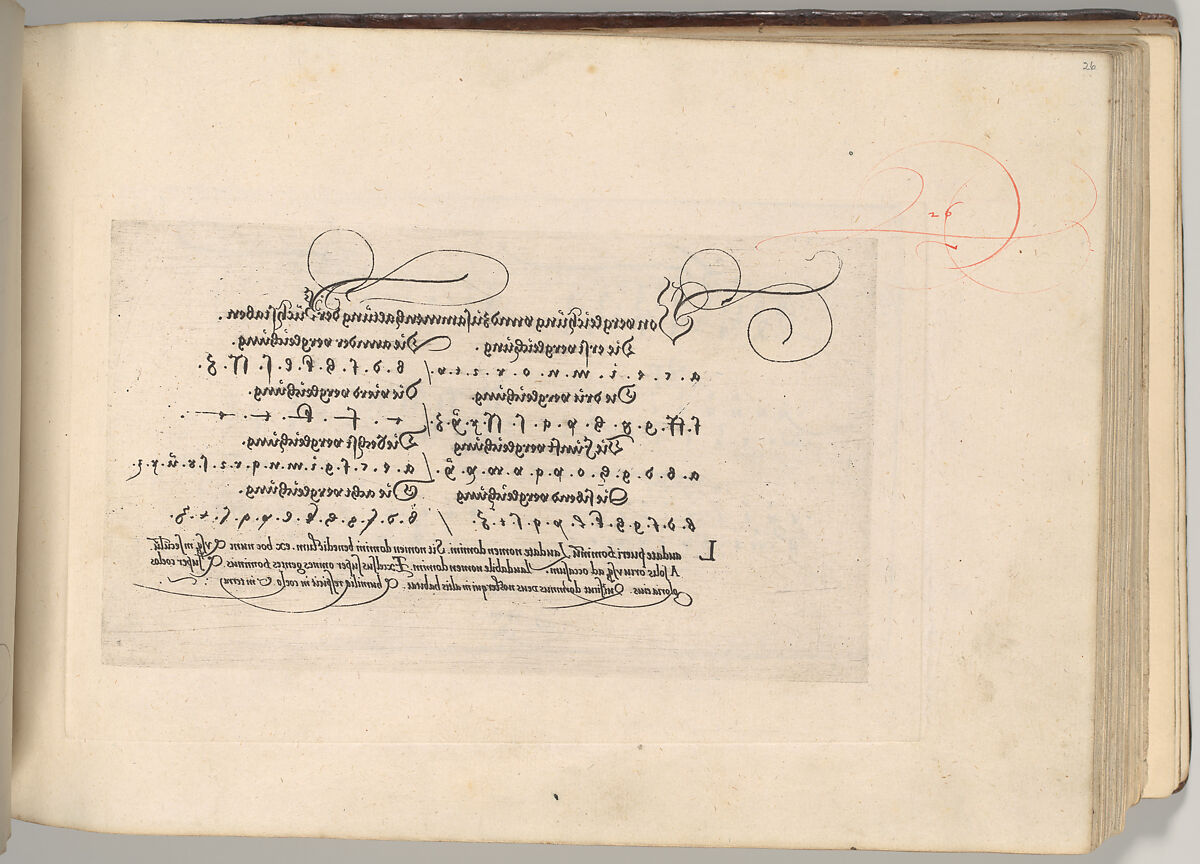 26
26
Von vergleichüng vnnd züsammenhaltüng der Büchstaben .
Die erst vergleichüng. Die annder vergleichüng.
a. c. e. i. m. n. o. r. z. t. v. / b. d. f. h. k. l. ſ. ſſ. z.
Die drit vergleichüng. Die vierd vergleichüng.
ſ. ſſ. g. y. h. p. q. ſ. ſſ. x. ÿ.
Die Fünfft vergleichüng Die Sechst vergleichüng.
a. b. d. g. h. o. p. q. v. w. x. ÿ. / a. e. c. f. g. i. m. n. q. r. z. ſ. x. ü. y. z.
Die sibend vergleichüng Die acht vergleichüng.
b. d. f. g. h. k. l. p. q. ſ. t. z. / b. d. f. g. h. k. l. p. q. ſ. t. z.
Laudate pueri Dominū. Laudate nomen domini. Sit nomen domini benedictum. ex hoc nunc & vsq in seculū.
A solis ortu vsq ad occasum. laudabile nomen domini. Excelsus super omnes gentes dominus & super coelos
gloria eius. Quis sicut dominus deus noster qui in altis habitat. & humilia respicit in coelo & in terra